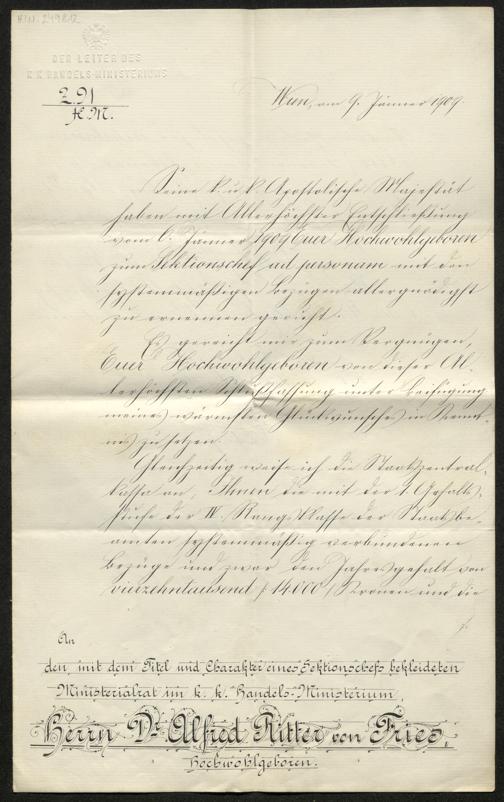 DER LEITER DES
K. K. HANDELS-MINISTERIUMS
Z. 91
H.M.
Wien, am 9. Jänner 1909.
Seine k. u. k. Apostolische Majestät
haben mit Allerhöchster Entschließung
vom 6. Jänner 1909 Euer Hochwohlgeboren
zum Sektionschef ad personam mit den
systemmäßigen Bezügen allergnädigst
zu ernennen geruht.
Es gereicht mir zum Vergnügen,
Euer Hochwohlgeboren von dieser Al-
lerhöchsten Schlußfassung unter Beifügung
meines wärmsten Glückwunsches in Kennt-
nis zu setzen.
Gleichzeitig weise ich die Staatszentral-
kassa an, Ihnen die mit der 1. Gehalts-
stufe der IV. Rangsklasse der Staatsbe-
amten systemmäßig verbundenen
Bezüge und zwar den Jahresgehalt von
vierzehntausend /14.000/ Kronen und die
An
den mit dem Titel und Charakter eines Sektionschefs bekleideten
Ministerialrat im k. k. Handels-Ministerium,
Herrn Dr Alfred Ritter von Fries,
Hochwohlgeboren.